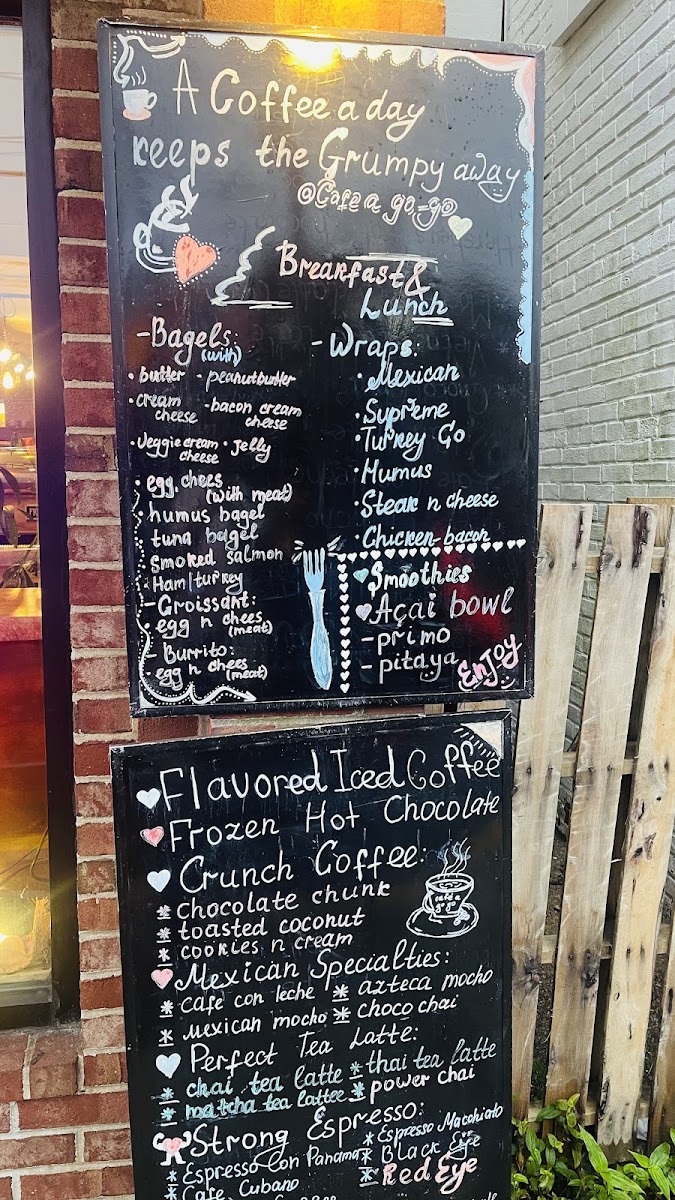 A Coffee a day
keeps the Grumpy away
@Cafe a go-go
Breakfast &
Lunch
-Bagels:
(with)
• butter • peanutbutter
• cream cheese - bacon cream cheese
• veggie cream cheese • Jelly
• egg. chees
(with meat)
• humus bagel
tuna bagel
smoked salmon
Ham/turkey
- Groissant:
• egg n chees
(meat)
Burrito:
• egg n chees
(meat)
- Wraps:
• Mexican
• Supreme
• Turkey Go
• Humus
• Steak n cheese
• Chicken-bacon
Smoothies
Açai bowl
- primo
- pitaya
Enjoy
Flavored Iced Coffee
Frozen Hot Chocolate
Crunch Coffee:
* chocolate chunk
* toasted coconut
* cookies n cream
cafe a go go
Mexican Specialties:
* cafe con leche * azteca mocho
* Mexican mocho * choco chai
Perfect Tea Latte:
* chai tea latte * thai tea latte
* matcha tea lattee * power chai
Strong Espresso:
* Espresso Con Panama * Espresso Macchiato
* Cafe Cubano * Black Eye
* Red Eye